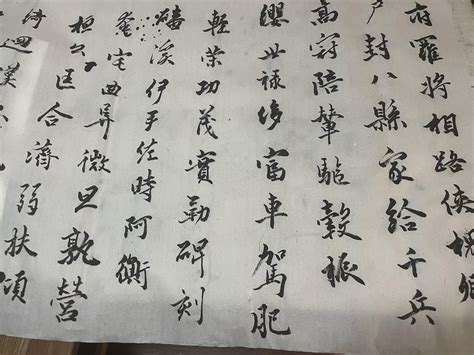 府羅將相路俠槐卿
戶封八縣家給千兵
高冠陪輦驅轂振
纓世祿侈富車駕肥
輕策功茂實勒碑刻
磻溪伊尹佐時阿衡
奄宅曲阜微旦孰營
桓公匡合濟弱扶傾
綺迴漢